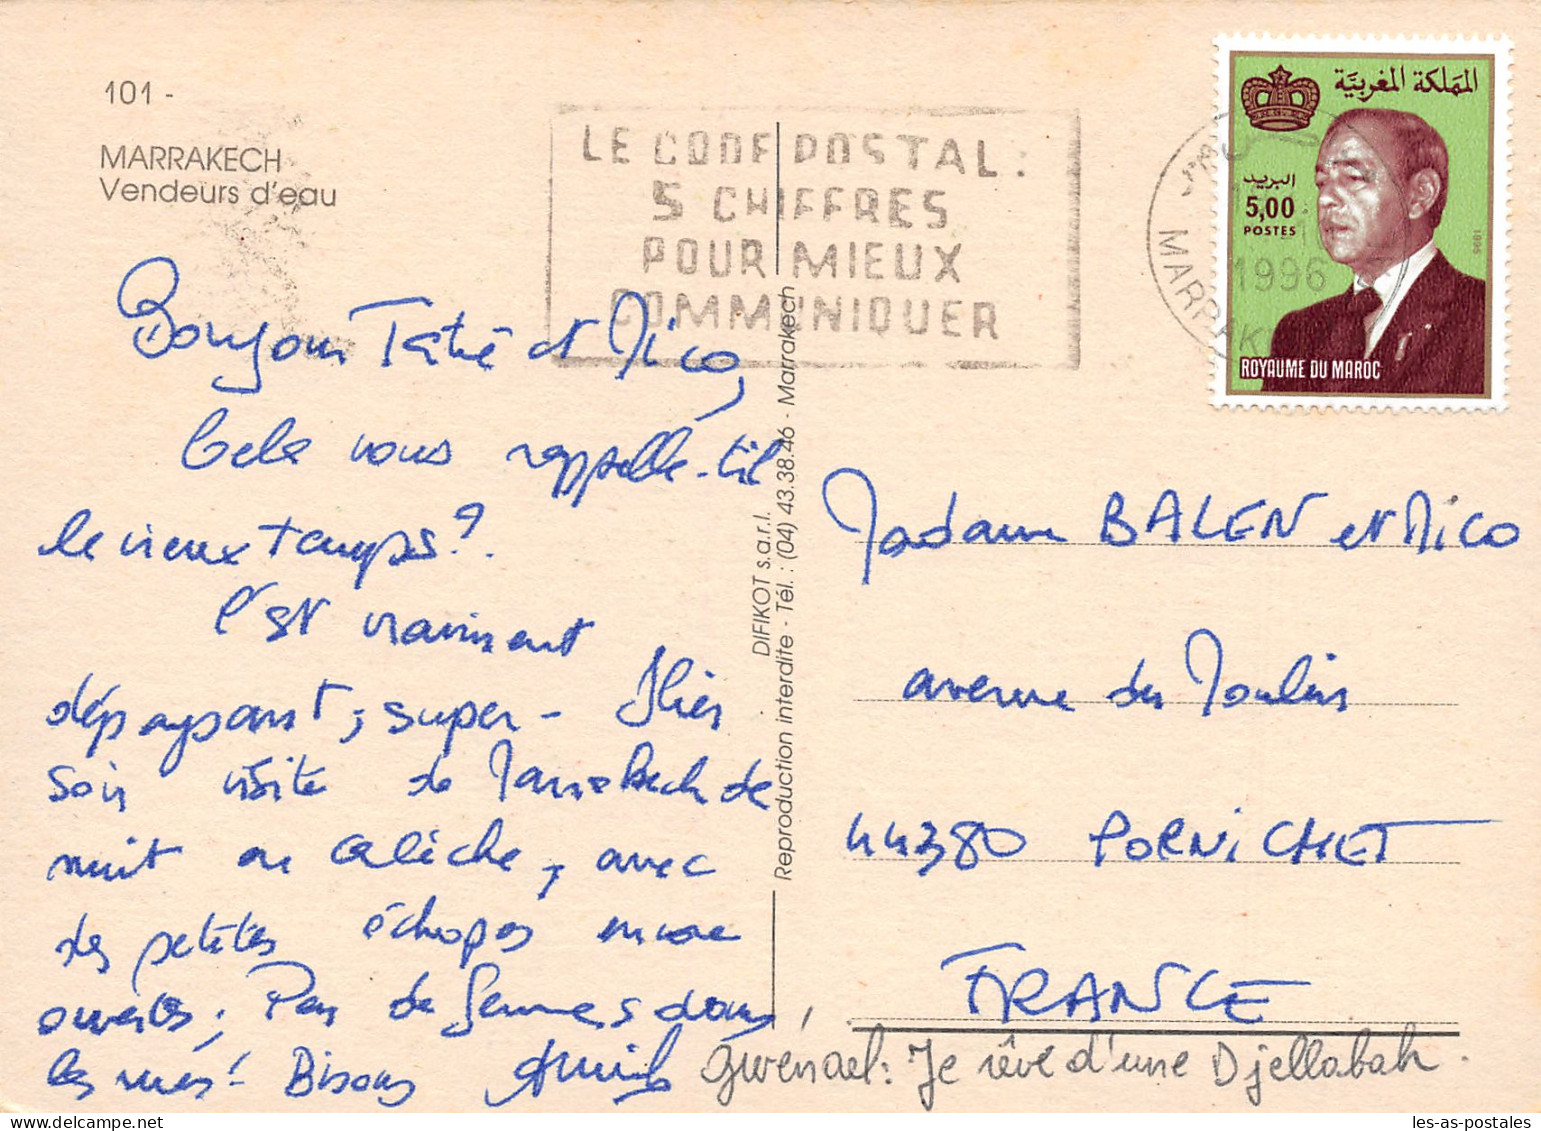 101 -
MARRAKECH
Vendeurs d'eau
LE CODE POSTAL :
5 CHIFFRES
POUR MIEUX
COMMUNIQUER
المملكة المغربية
البريد
5,00
POSTES
1996
ROYAUME DU MAROC
MARRAK
1996
Bonjour Tatie et Nico,
Cela vous rappelle-t-il
le vieux temps ?
C'est vraiment
dépaysant, super - Hier
soir visite de Marrakech de
nuit en calèche, avec
des petites échopes encore
ouvertes, Pas de femmes dans
les rues ! Bisous
Gwenael : Je rêve d'une Djellabah.
DIFIKOT s.a.r.l.
Reproduction interdite - Tél. : (04) 43.38.46 - Marrakech
Madame BALEN et Nico
avenue du Moulin
44380 PORNICHET
FRANCE
les-as-postales